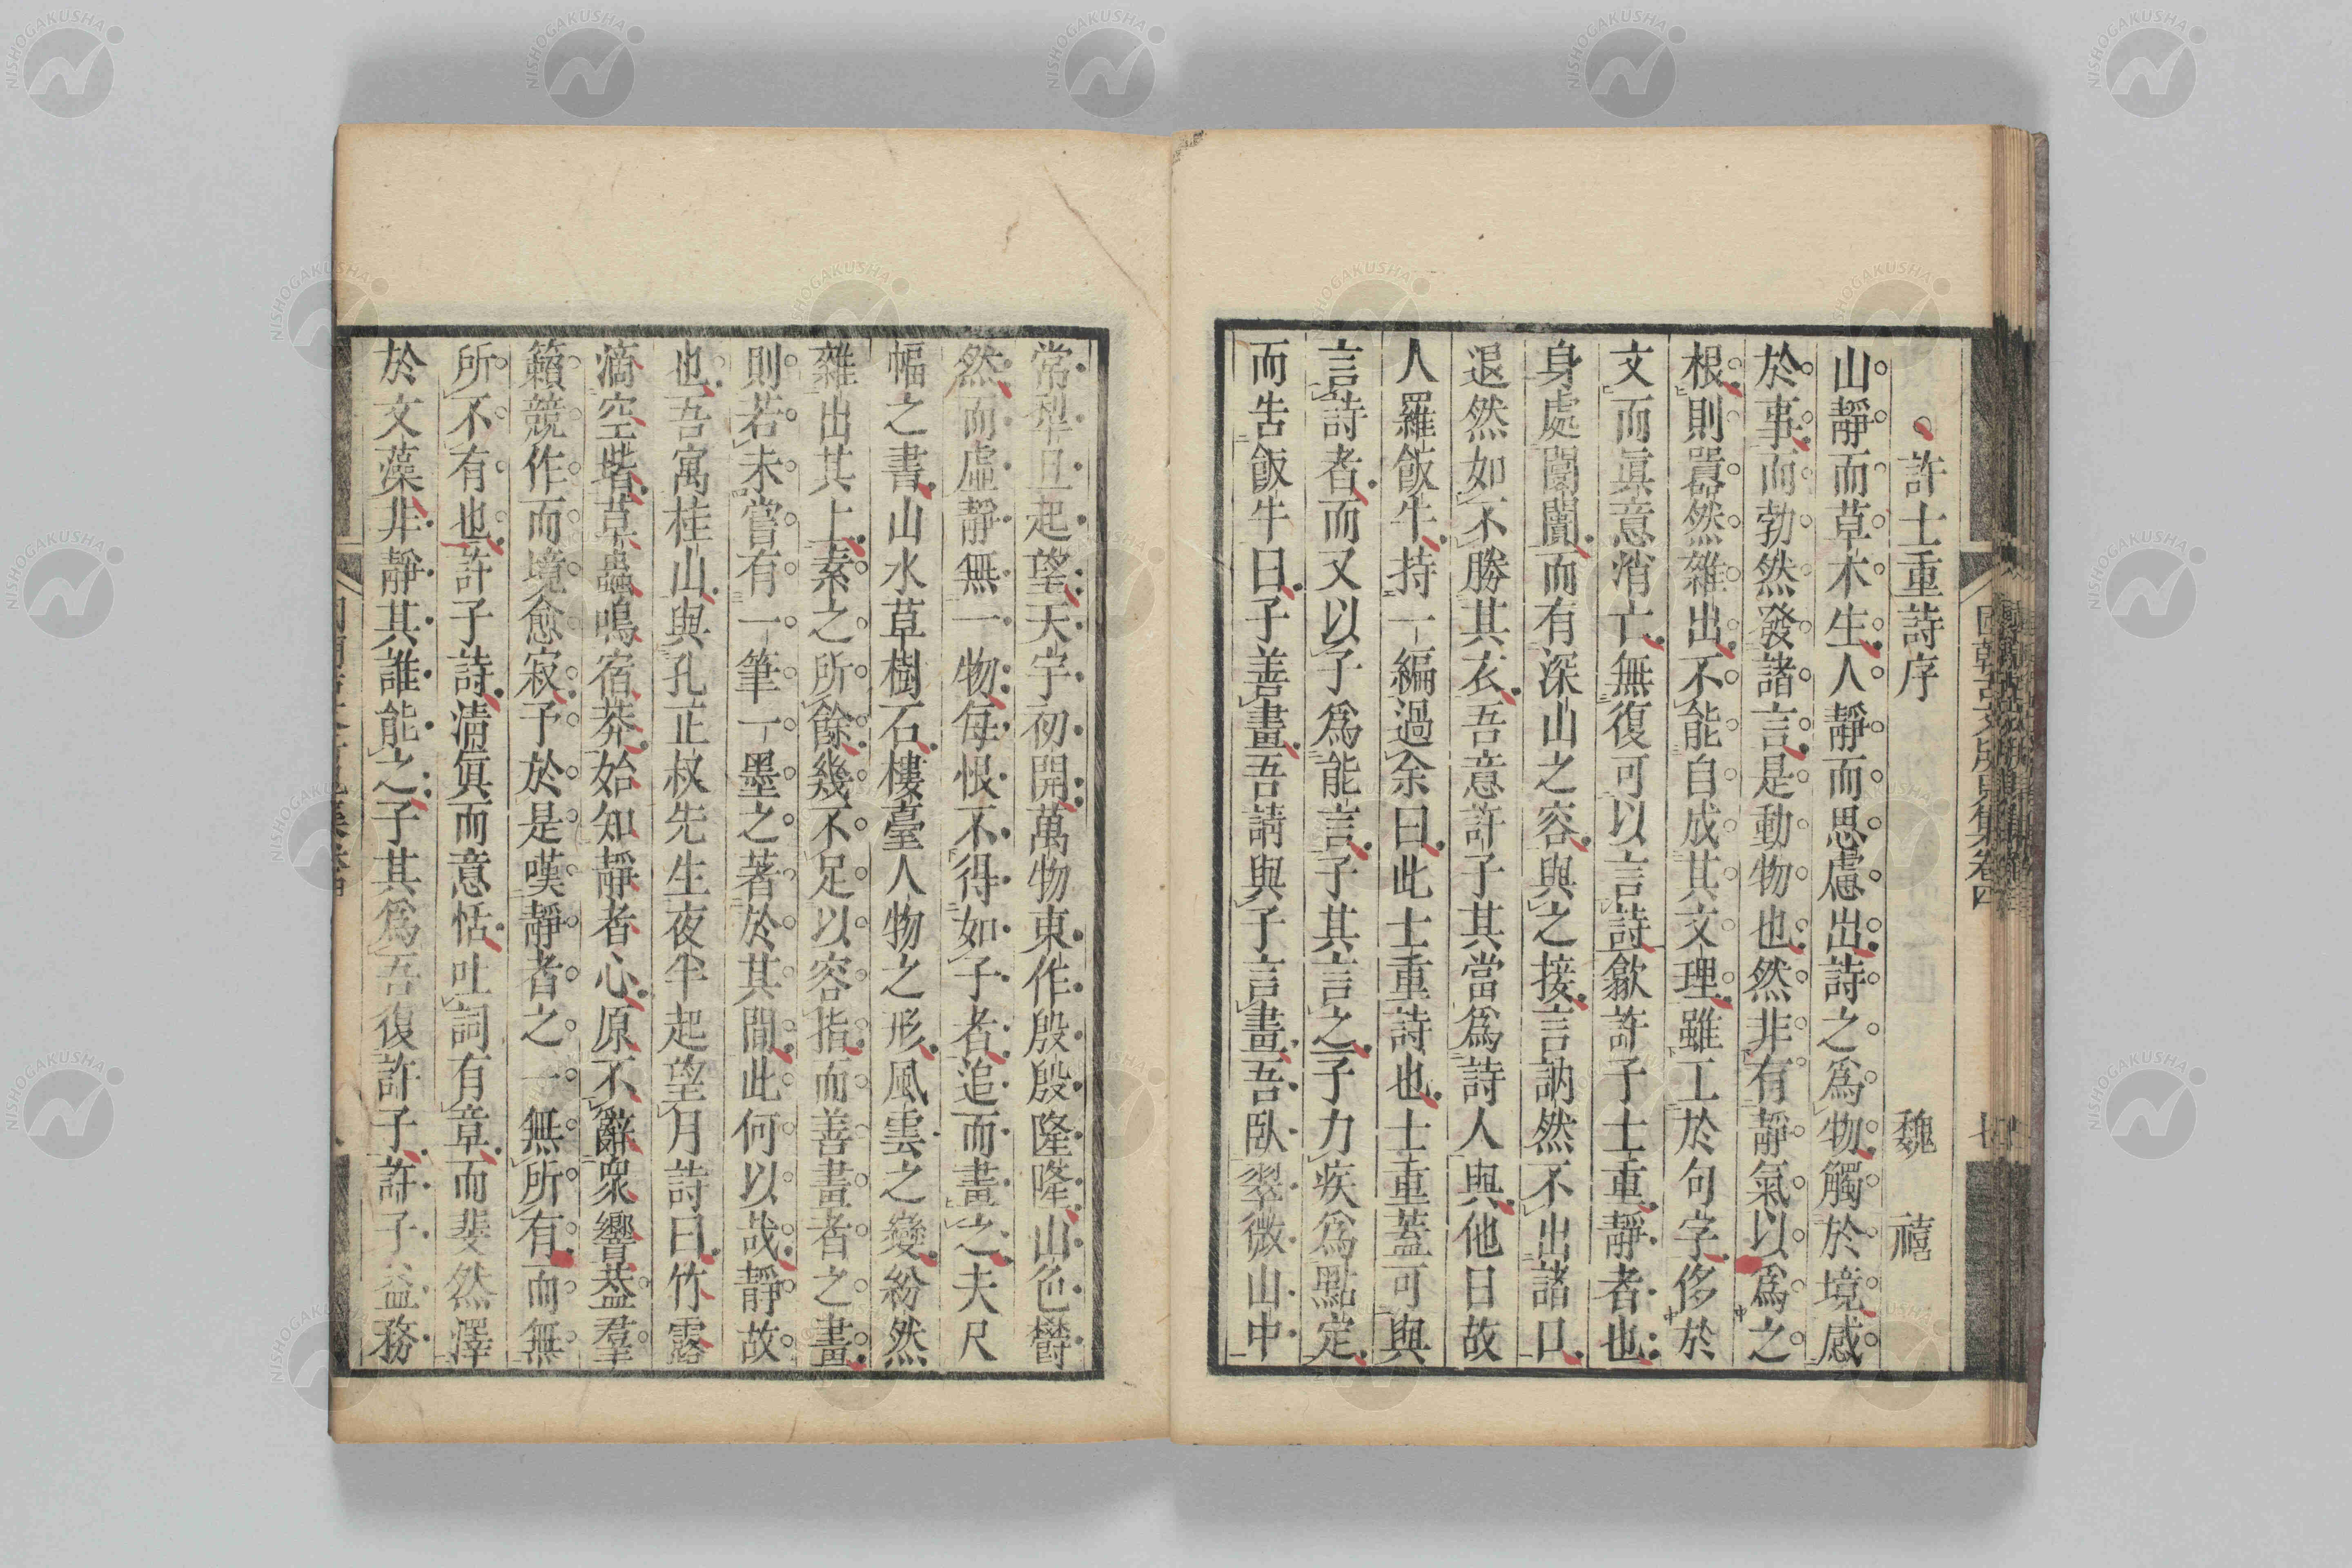 許士重詩序 魏禧
山靜而草木生人靜而思慮出詩之爲物觸於境感
於事而勃然發諸言是動物也然非有靜氣以爲之
根則囂然雜出不能自成其文理雖工於句字侈於
文而眞意消亡無復可以言詩歙許子士重靜者也
身處闤闠而有深山之容與之接言訥然不出諸口
退然如不勝其衣吾意許子其當爲詩人與他日故
人羅飯牛持一編過余曰此士重詩也士重蓋可與
言詩者而又以予爲能言子其言之予力疾爲點定
而告飯牛曰子善畫吾請與子言畫吾臥翠微山中
常犁旦起望天宇初開萬物東作殷殷隆隆山色鬱
然而虛靜無一物每恨不得如子者追而畫之夫尺
幅之書山水草樹石樓臺人物之形風雲之變紛然
雜出其上素之所餘幾不足以容指而善畫者之畫
則若未嘗有一筆一墨之著於其間此何以哉靜故
也吾寓桂山與孔正叔先生夜半起望月詩曰竹露
滴空堦草蟲鳴宿莽始知靜者心原不辭衆響葢羣
籟競作而境愈寂予於是嘆靜者之一無所有而無
所不有也許子詩清眞而意恬吐詞有章而斐然澤
於文藻非靜其誰能之子其爲吾復許子許子益務
國朝古文所見集卷四
七
NISHOGAKUSHA